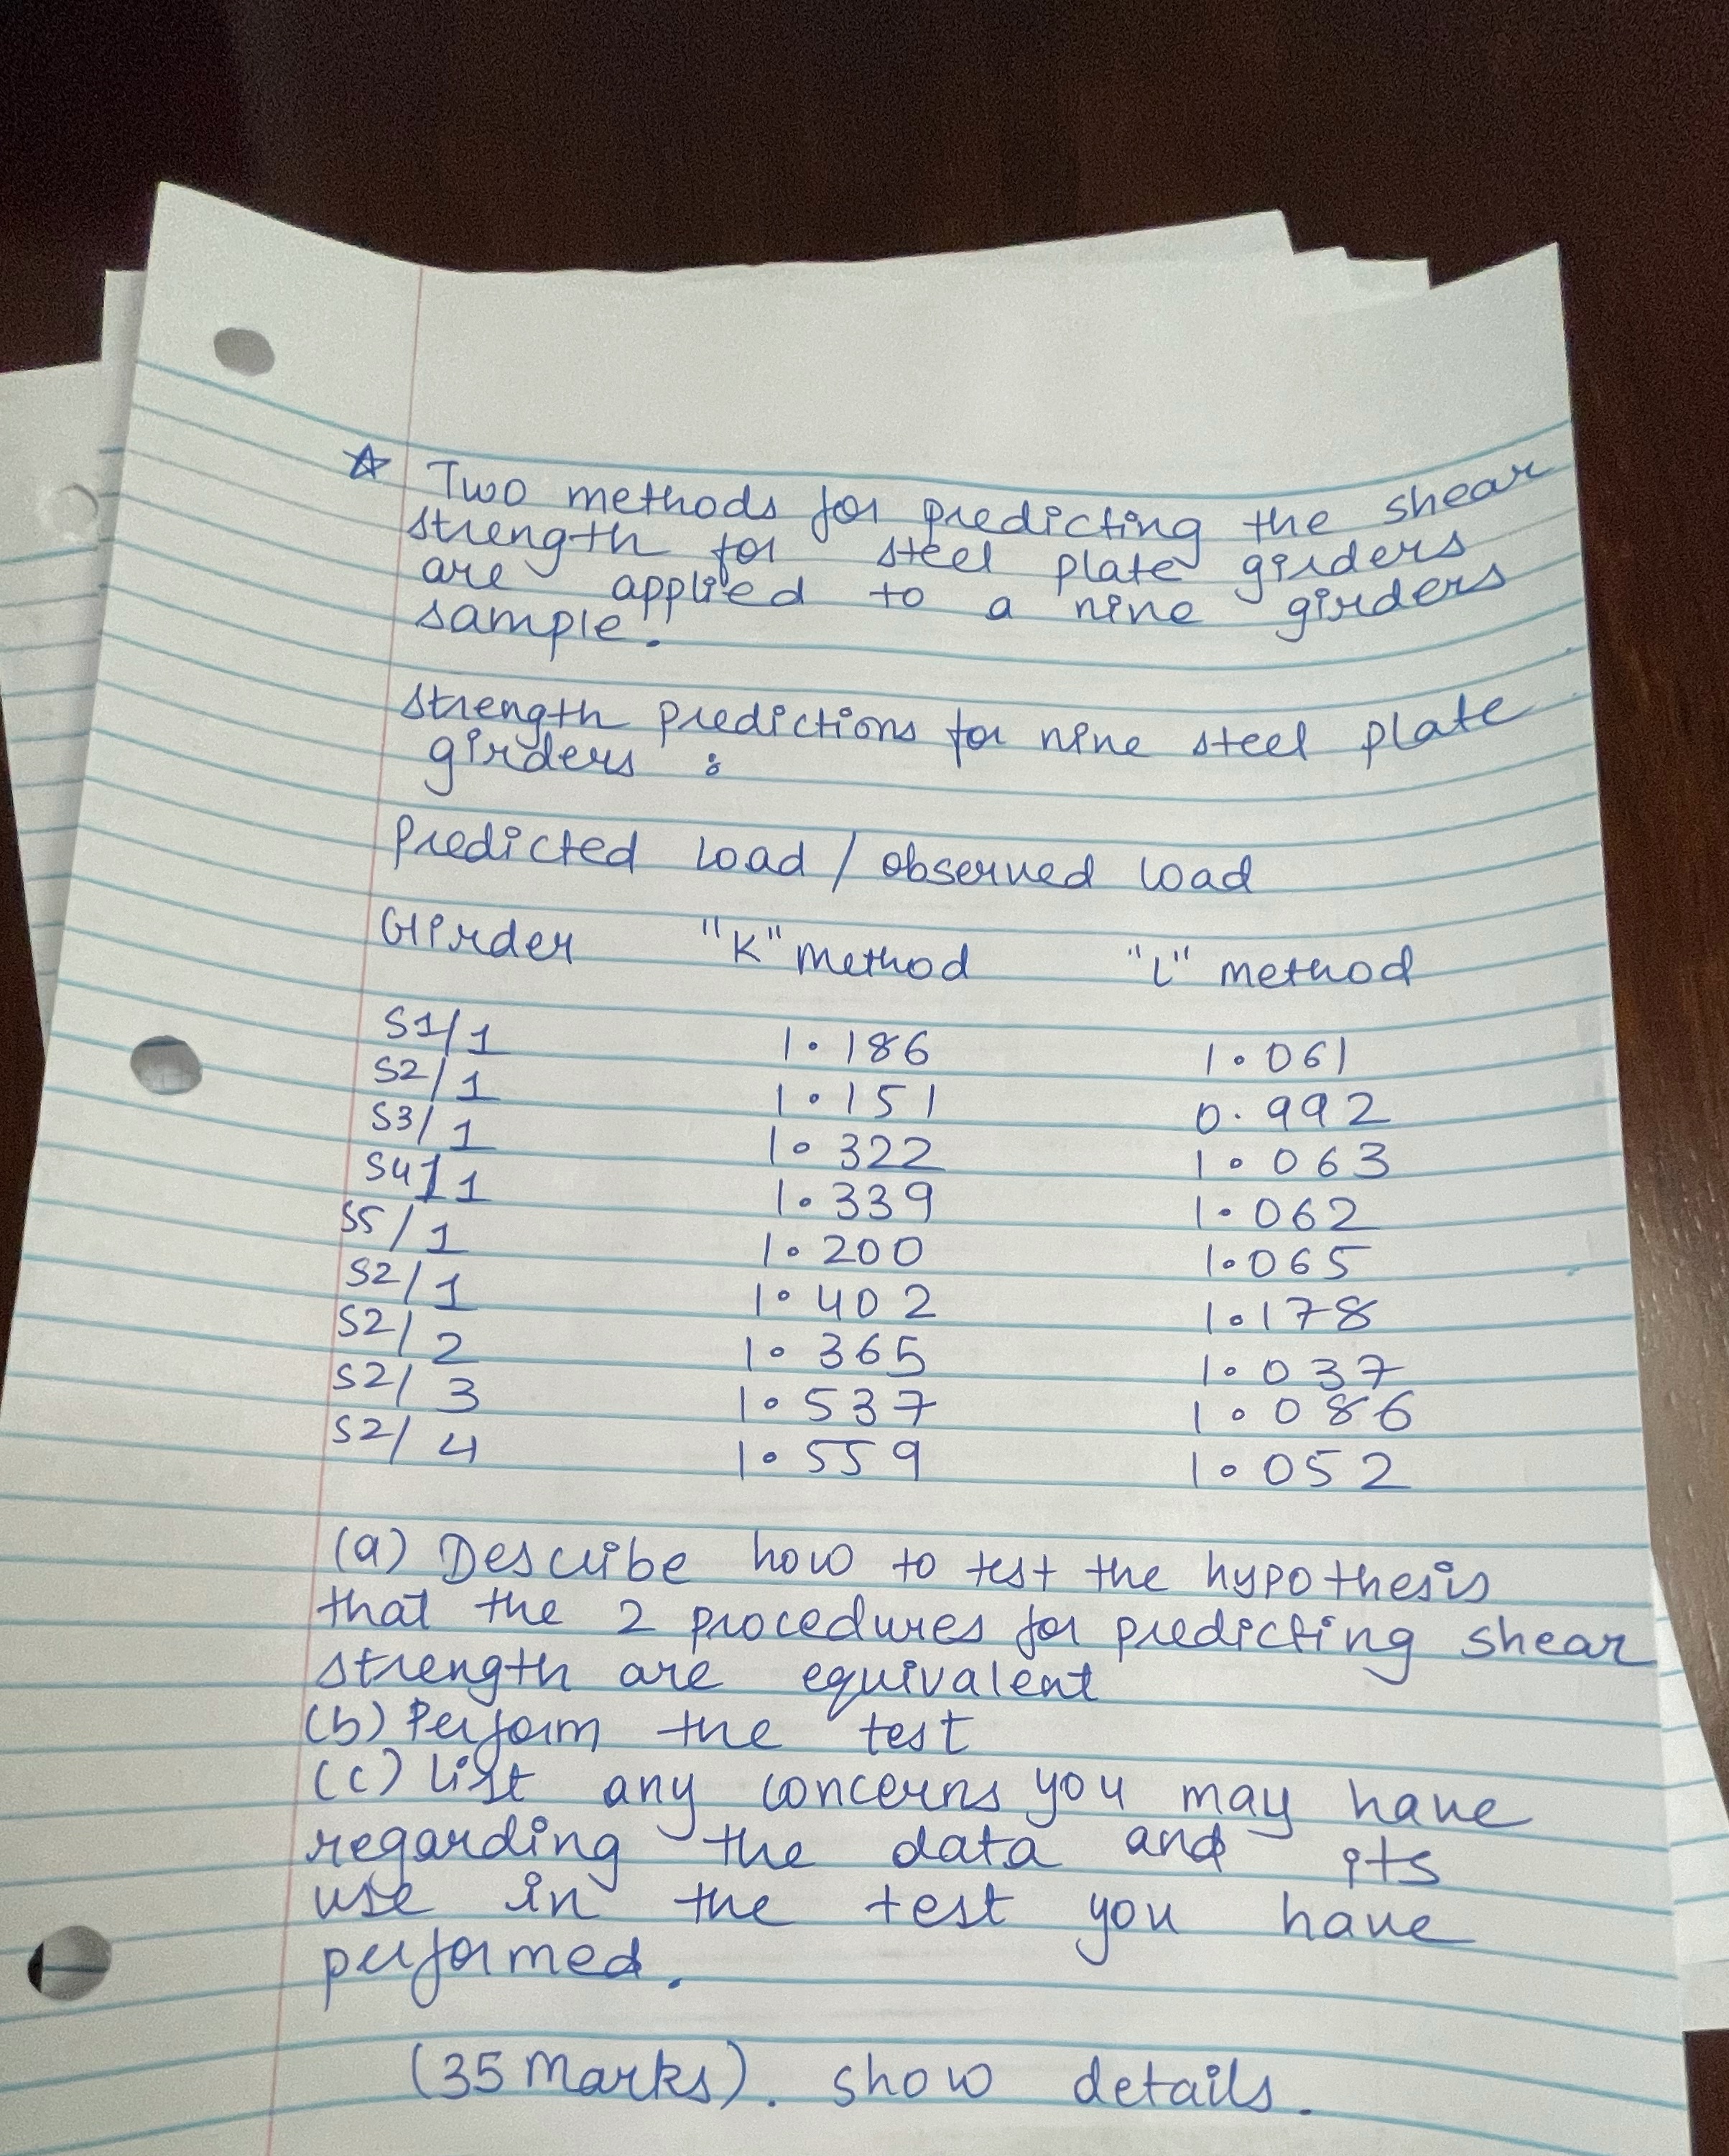 ☆ Two methods for predicting the shear
strength for steel plate girders
are applied to a nine girders
sample.
strength predictions for nine steel plate
girders :
Predicted Load / observed load
Girder "K" Method "L" method
S1/1 1.186 1.061
S2/1 1.151 0.992
S3/1 1.322 1.063
S4/1 1.339 1.062
S5/1 1.200 1.065
S2/1 1.402 1.178
S2/2 1.365 1.037
S2/3 1.537 1.086
S2/4 1.559 1.052
(a) Describe how to test the hypothesis
that the 2 procedures for predicting shear
strength are equivalent
(b) Perform the test
(c) List any concerns you may have
regarding the data and its
use in the test you have
performed.
(35 Marks). show details.